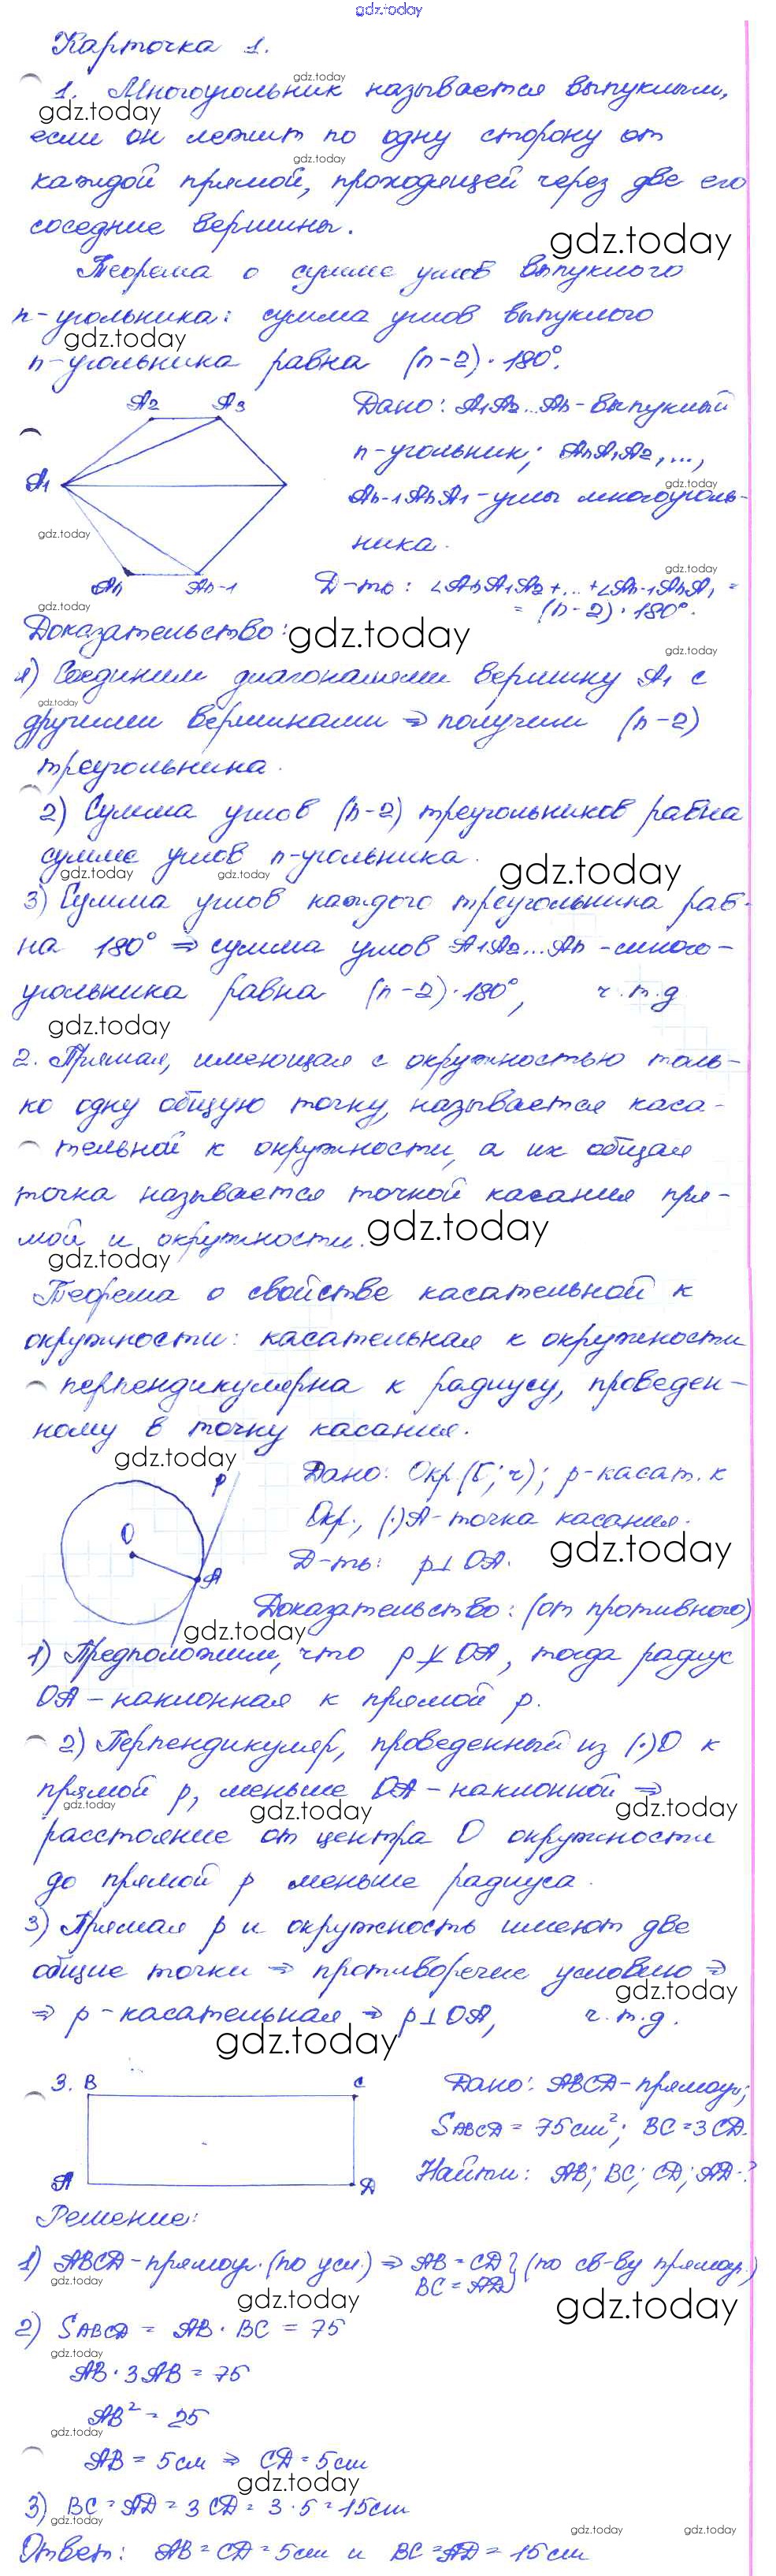 gdz.today
Карточка 1.
gdz.today
1. Многоугольник называется выпуклым,
gdz.today
если он лежит по одну сторону от
gdz.today
каждой прямой, проходящей через две его
соседние вершины.
gdz.today
Теорема о сумме углов выпуклого
n-угольника: сумма углов выпуклого
gdz.today
n-угольника равна (n-2)·180°.
A2 A3
Дано: A1A2...An - выпуклый
n-угольник; AnA1A2, ...,
A1
gdz.today
An-1AnA1 - углы многоуголь-
gdz.today
ника.
gdz.today
An An-1
Д-ть: ∠AnA1A2 + ... + ∠An-1AnA1 =
gdz.today
= (n-2)·180°.
Доказательство:
gdz.today
gdz.today
1) Соединим диагоналями вершину A1 с
gdz.today
другими вершинами ⇒ получим (n-2)
треугольника.
2) Сумма углов (n-2) треугольников равна
сумме углов n-угольника.
gdz.today
gdz.today gdz.today
3) Сумма углов каждого треугольника рав-
на 180° ⇒ сумма углов A1A2...An - много-
угольника равна (n-2)·180°, ч.т.д
gdz.today
2. Прямая, имеющая с окружностью толь-
ко одну общую точку, называется каса-
тельной к окружности, а их общая
точка называется точкой касания пря-
мой и окружности.
gdz.today
gdz.today
Теорема о свойстве касательной к
окружности: касательная к окружности
перпендикулярна к радиусу, проведен-
ному в точку касания.
gdz.today
p
Дано: Окр. (; r); p - касат. к
O
Окр., (·)A - точка касания.
gdz.today
A
Д-ть: p⊥OA.
Доказательство: (от противного)
gdz.today
1) Предположим, что p ⊥̸ OA, тогда радиус
OA - наклонная к прямой p.
2) Перпендикуляр, проведенный из (·)O к
прямой p, меньше OA - наклонной ⇒
gdz.today gdz.today gdz.today
расстояние от центра O окружности
до прямой p меньше радиуса.
3) Прямая p и окружность имеют две
общие точки ⇒ противоречие условию ⇒
gdz.today
⇒ p - касательная ⇒ p⊥OA, ч.т.д.
gdz.today
3. B C
Дано: ABCD - прямоуг.;
SABCD = 75см²; BC = 3CD.
A D
Найти: AB; BC; CD; AD - ?
Решение:
1) ABCD - прямоуг. (по усл.) ⇒ AB = CD } (по св-ву прямоуг.)
BC = AD
gdz.today
gdz.today
gdz.today
2) SABCD = AB · BC = 75
gdz.today
AB · 3AB = 75
AB² = 25
gdz.today
AB = 5см ⇒ CD = 5см
gdz.today
3) BC = AD = 3CD = 3·5 = 15см
gdz.today
gdz.today gdz.today
Ответ: AB = CD = 5см и BC = AD = 15см